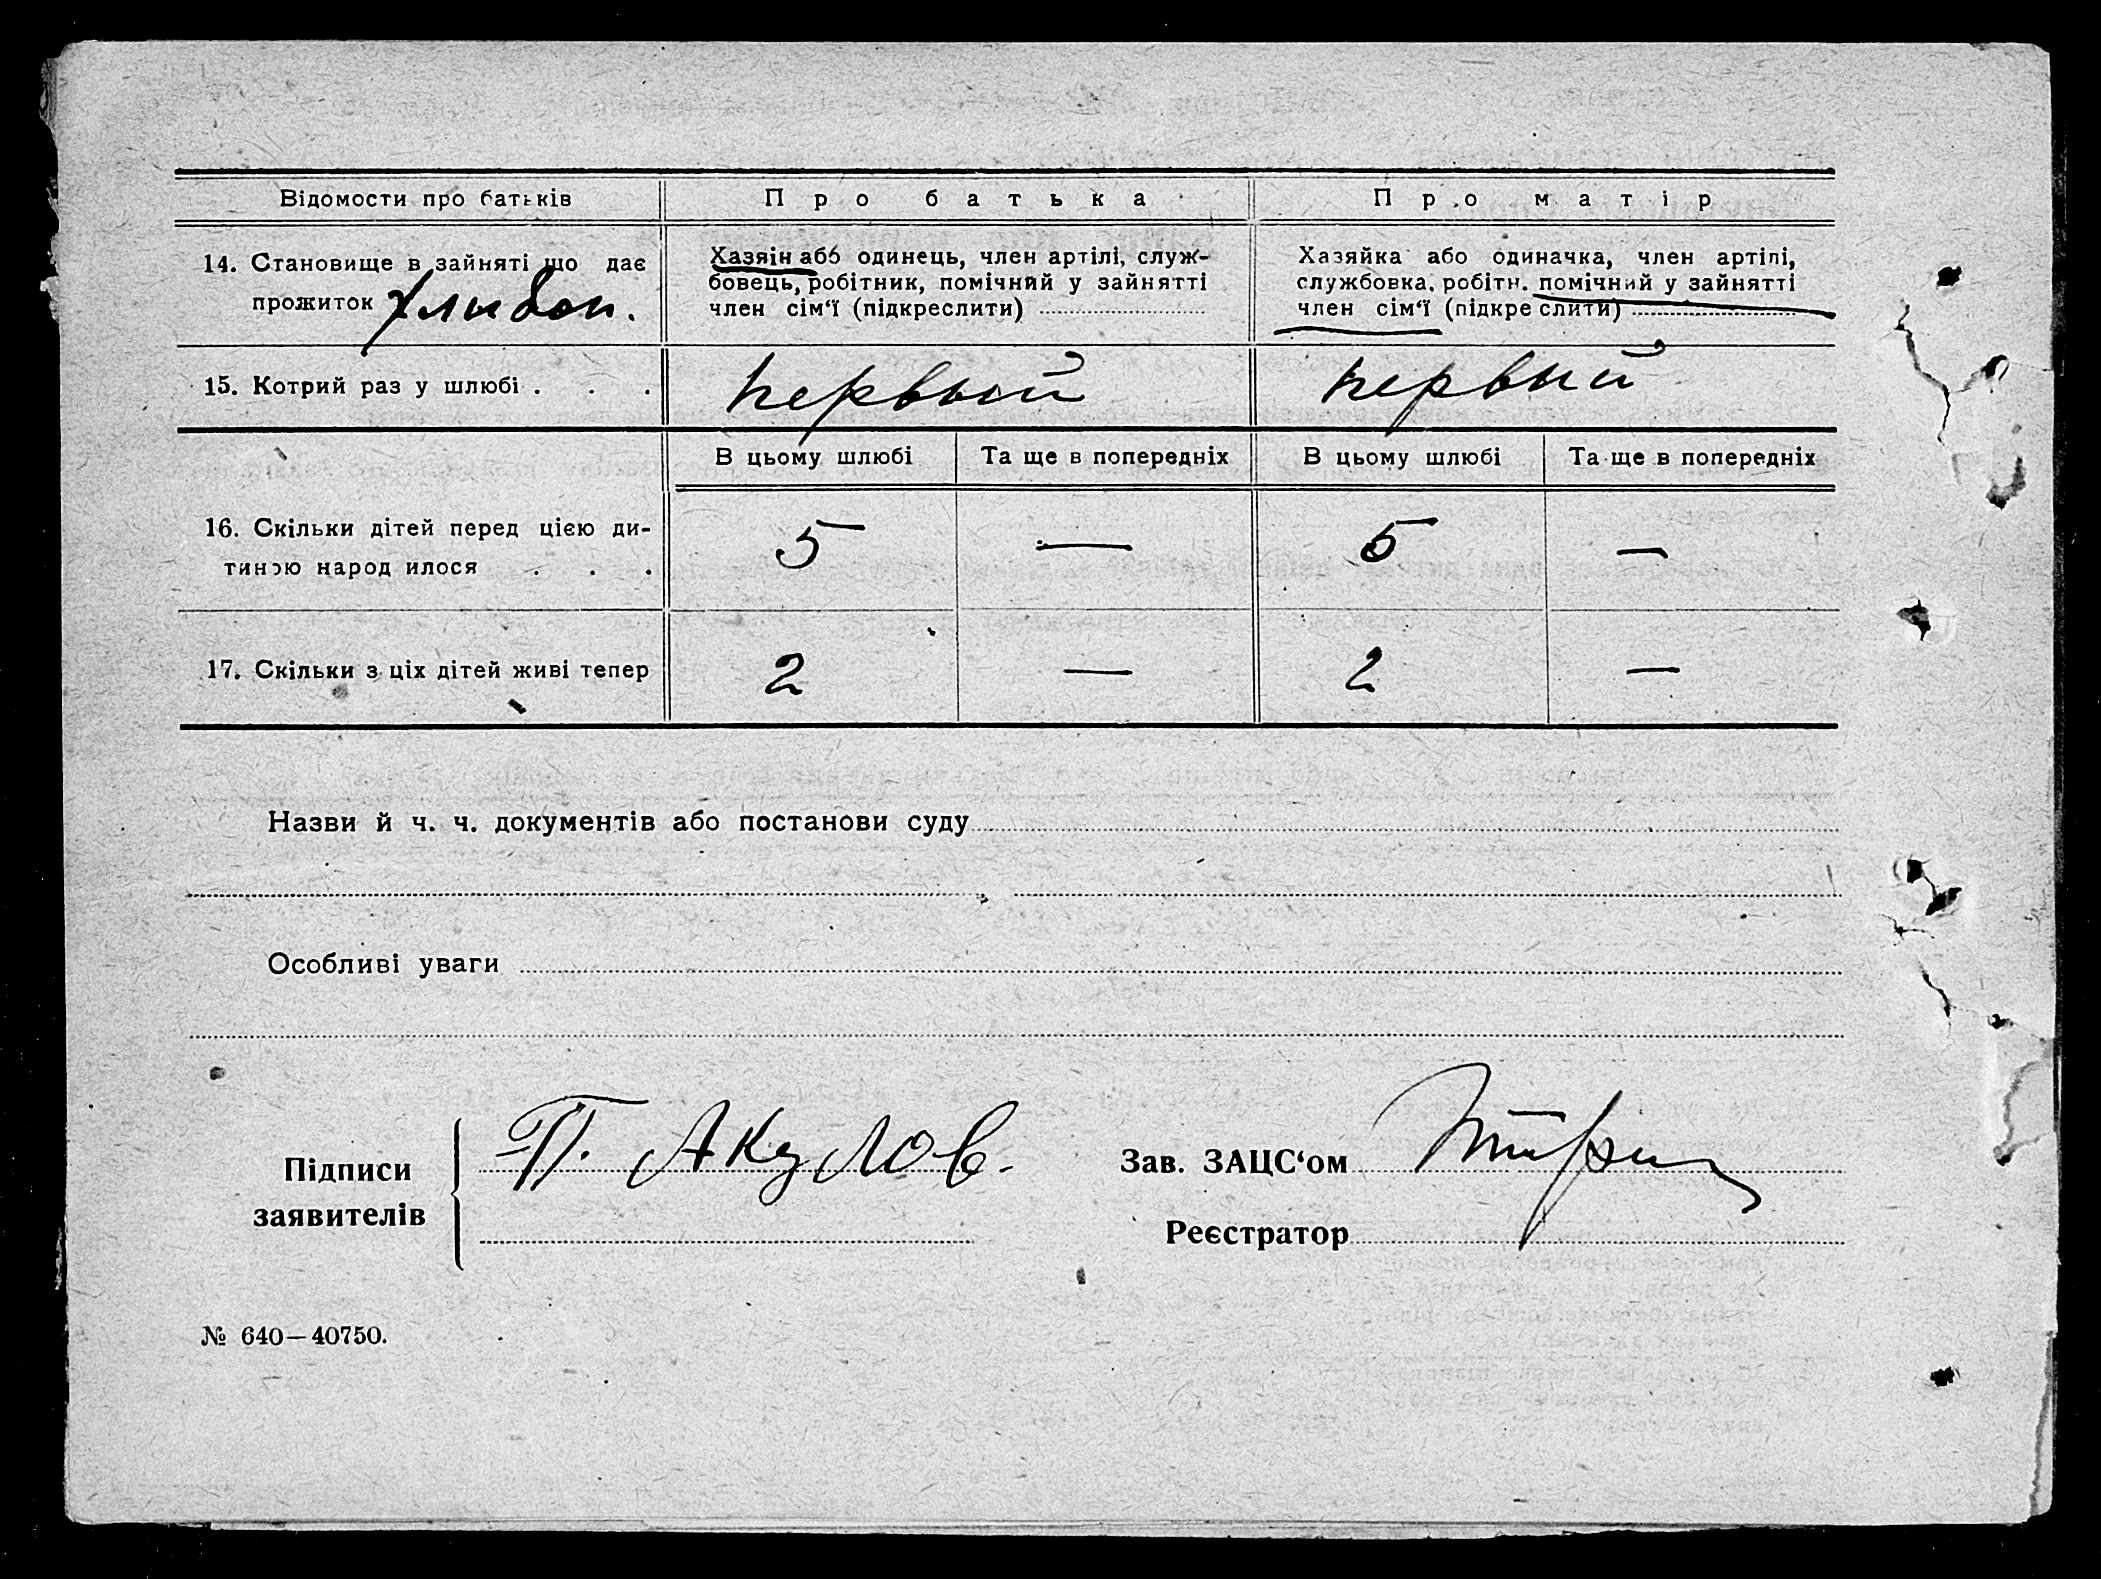 Відомости про батьків
Про батька
Про матір
14. Становище в зайняті що дає
прожиток
Хазяін або одинець, член артілі, служ-
бовець, робітник, помічний у зайнятті
член сім'ї (підкреслити)
Хазяйка або одиначка, член артілі,
службовка, робітн. помічний у зайнятті
член сім'ї (підкреслити)
15. Котрий раз у шлюбі . . .
первый
первый
В цьому шлюбі
Та ще в попередніх
В цьому шлюбі
Та ще в попередніх
16. Скільки дітей перед цією ди-
тиною народилося . . .
5
—
5
—
17. Скільки з ціх дітей живі тепер
2
—
2
—
Назви й ч. ч. документів або постанови суду
Особливі уваги
Підписи
заявителів
П. Акулов.
Зав. ЗАЦС'ом
Реєстратор
№ 640—40750.